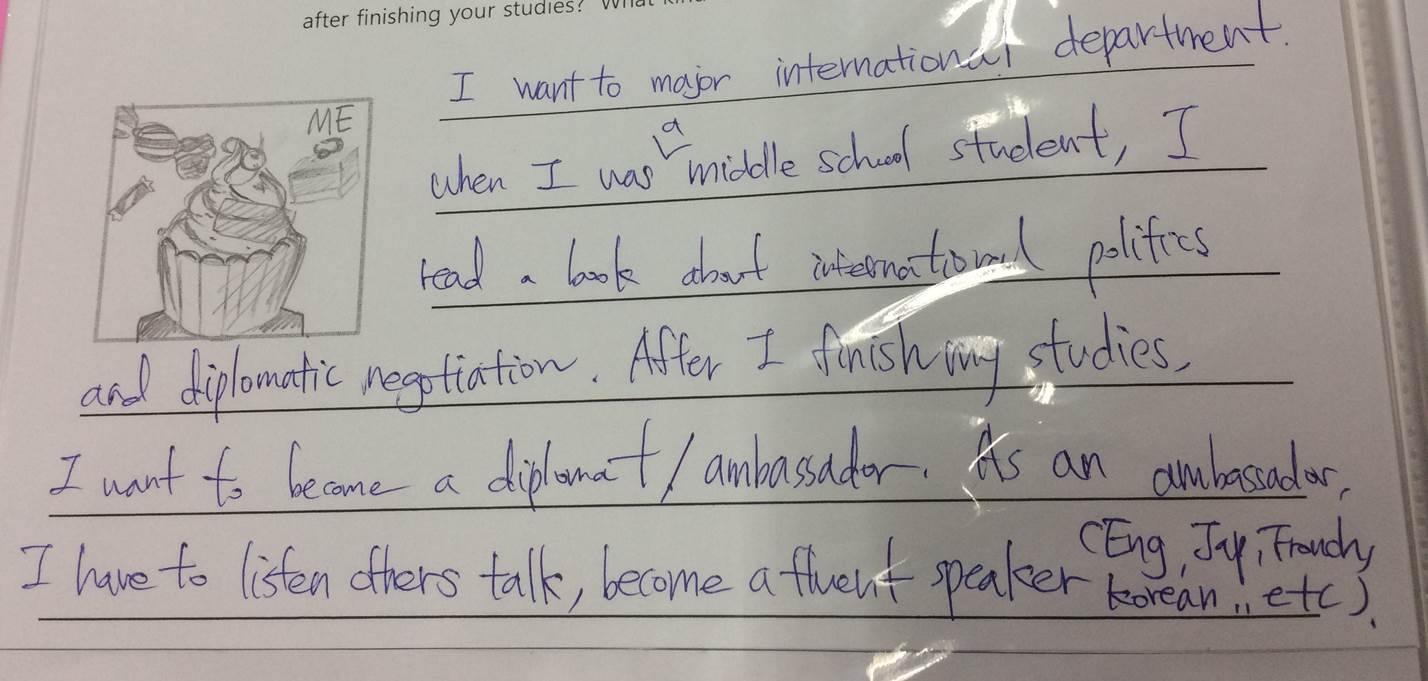 after finishing your studies? What
ME
I want to major international department.
when I was a middle school student, I
read a book about international politics
and diplomatic negotiation. After I finish my studies,
I want to become a diplomat/ambassador. As an ambassador,
I have to listen others talk, become a fluent speaker (Eng, Jap, Franch,
korean,, etc).